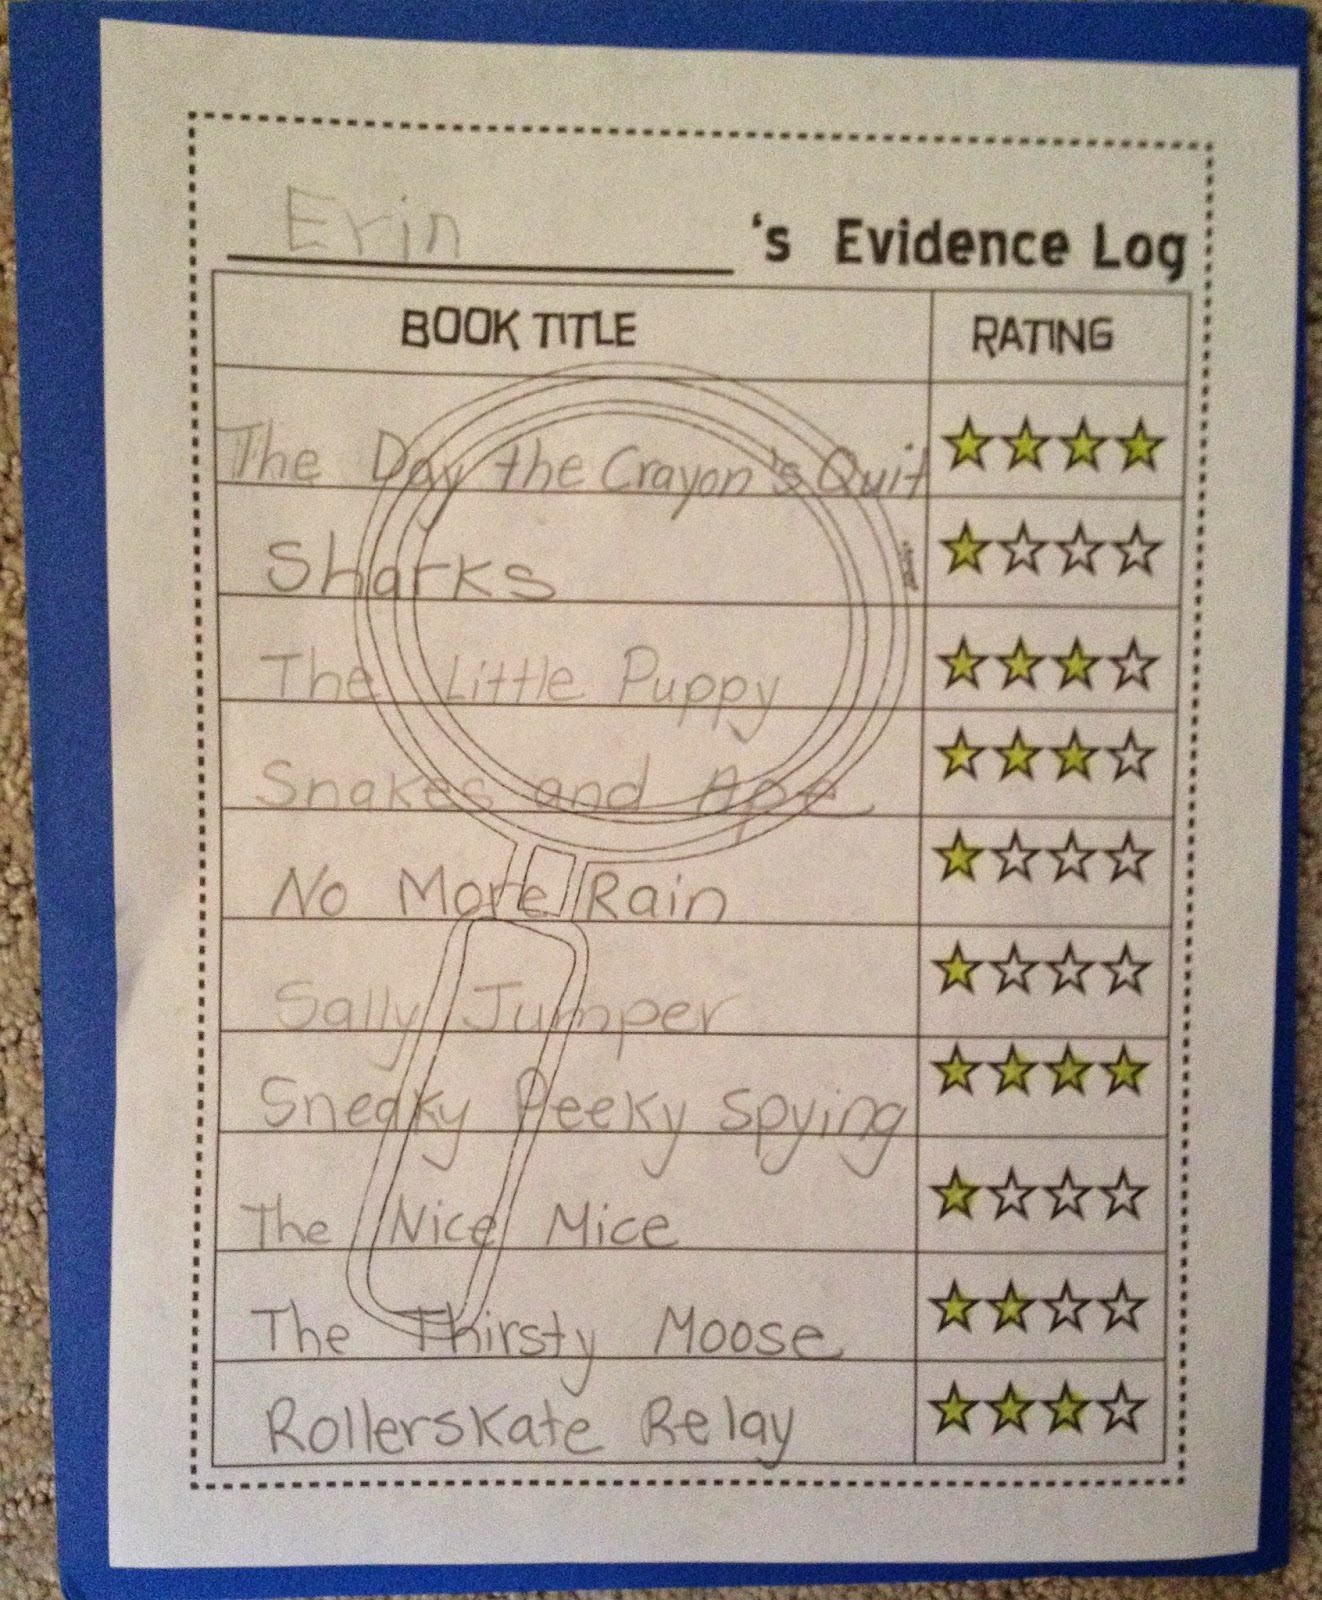 Erin 's Evidence Log
BOOK TITLE RATING
The Day the Crayon's Quit
Sharks
The Little Puppy
Snakes and Ape
No More Rain
Sally Jumper
Sneaky Peeky Spying
The Nice Mice
The Thirsty Moose
Rollerskate Relay